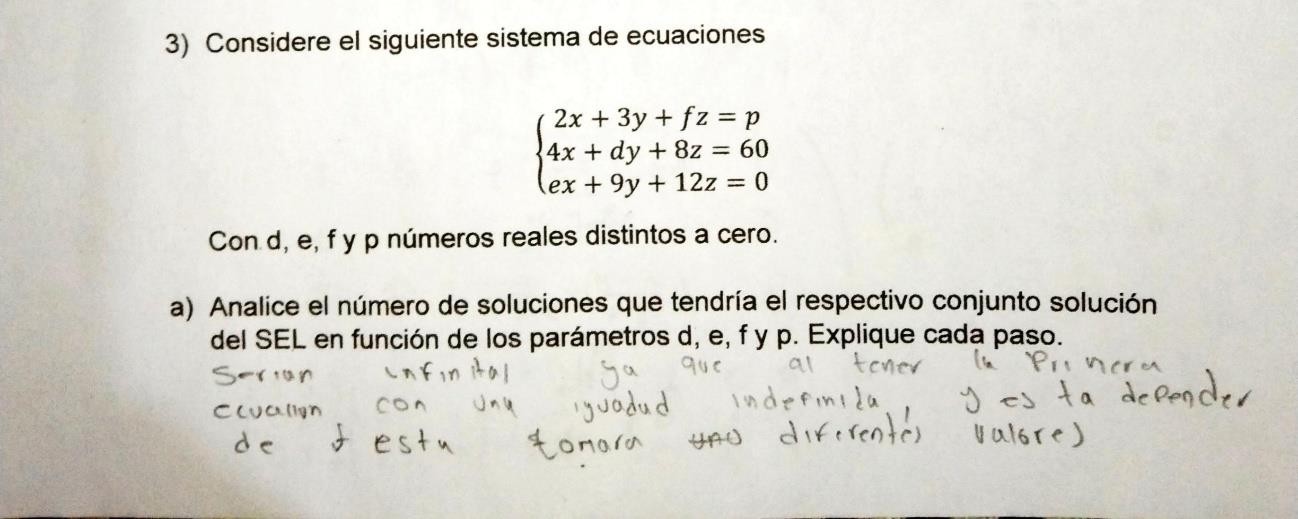 3) Considere el siguiente sistema de ecuaciones
2x + 3y + fz = p
4x + dy + 8z = 60
ex + 9y + 12z = 0
Con d, e, f y p números reales distintos a cero.
a) Analice el número de soluciones que tendría el respectivo conjunto solución
del SEL en función de los parámetros d, e, f y p. Explique cada paso.
Serian infinital ya que al tener la Primera
ecuacion con una iguadad indefinida, y esta depender
de f esta tomara diferentes valores